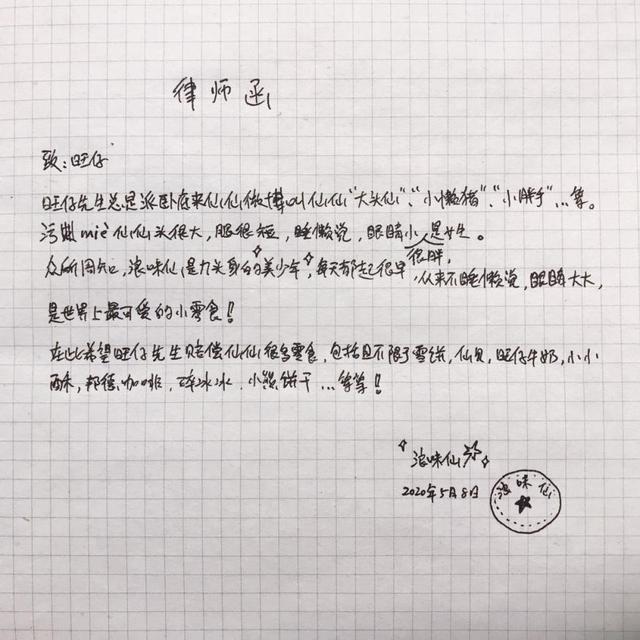 律师函
致：旺仔
旺仔先生总是派卧底来仙仙微博叫仙仙“大头仙”、“小懒猪”、“小胖子”...等。
污蔑miè仙仙头很大，腿很短，睡懒觉，眼睛小，很胖，是女生。
众所周知，浪味仙是九头身的美少年，每天都起很早，从来不睡懒觉，眼睛大大，
是世界上最可爱的小零食！
在此希望旺仔先生赔偿仙仙很多零食，包括且不限于雪饼，仙贝，旺仔牛奶，小小
酥，邦德咖啡，碎冰冰，小熊饼干...等等！
浪味仙
2020年5月8日
浪味仙